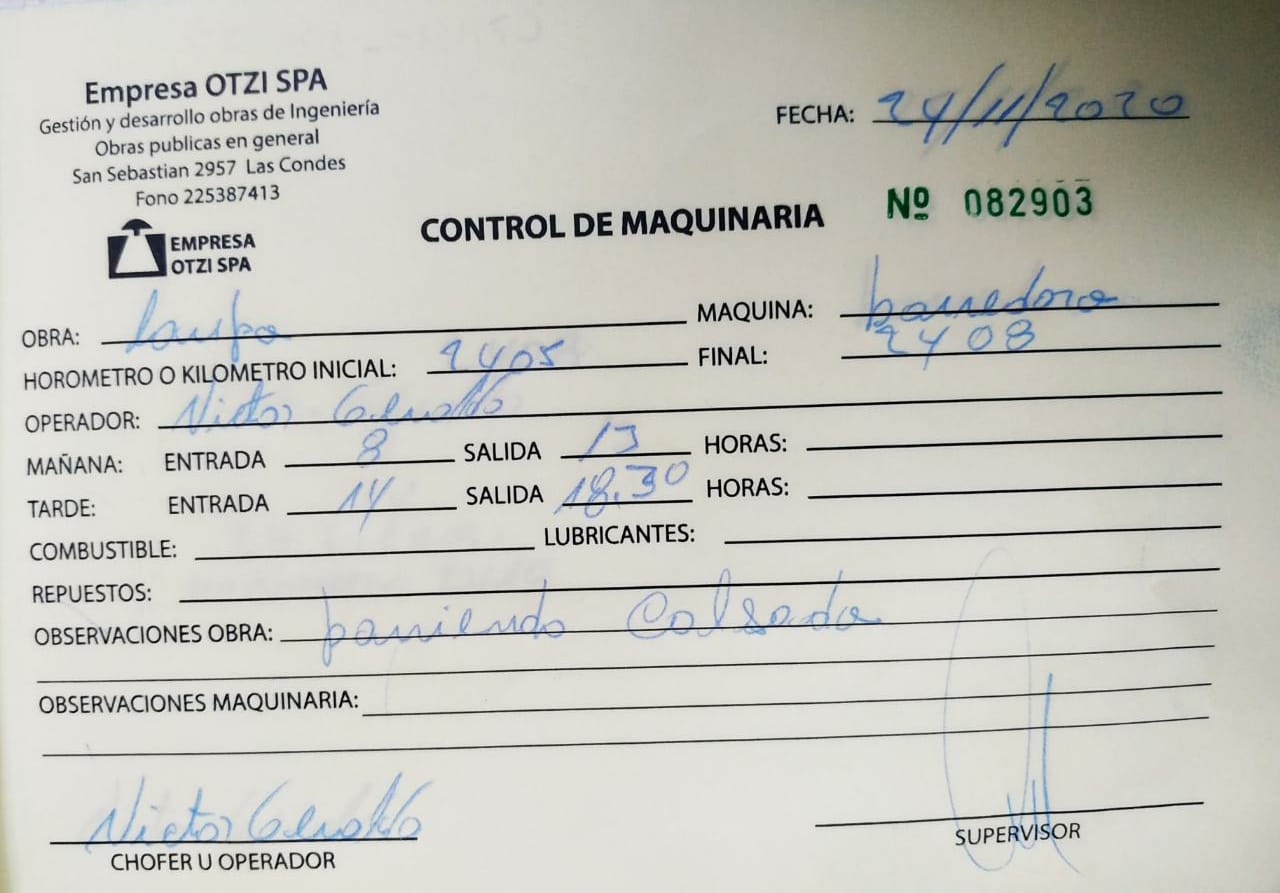 Empresa OTZI SPA
Gestión y desarrollo obras de Ingeniería
Obras publicas en general
San Sebastian 2957 Las Condes
Fono 225387413
EMPRESA
OTZI SPA
FECHA: 24/11/2020
Nº 082903
CONTROL DE MAQUINARIA
OBRA: Lampa MAQUINA: barredora
HOROMETRO O KILOMETRO INICIAL: 2405 FINAL: 2408
OPERADOR: Victor
MAÑANA: ENTRADA 8 SALIDA 13 HORAS:
TARDE: ENTRADA 14 SALIDA 18.30 HORAS:
COMBUSTIBLE: LUBRICANTES:
REPUESTOS:
OBSERVACIONES OBRA: barriendo Calsada
OBSERVACIONES MAQUINARIA:
Victor
CHOFER U OPERADOR
SUPERVISOR